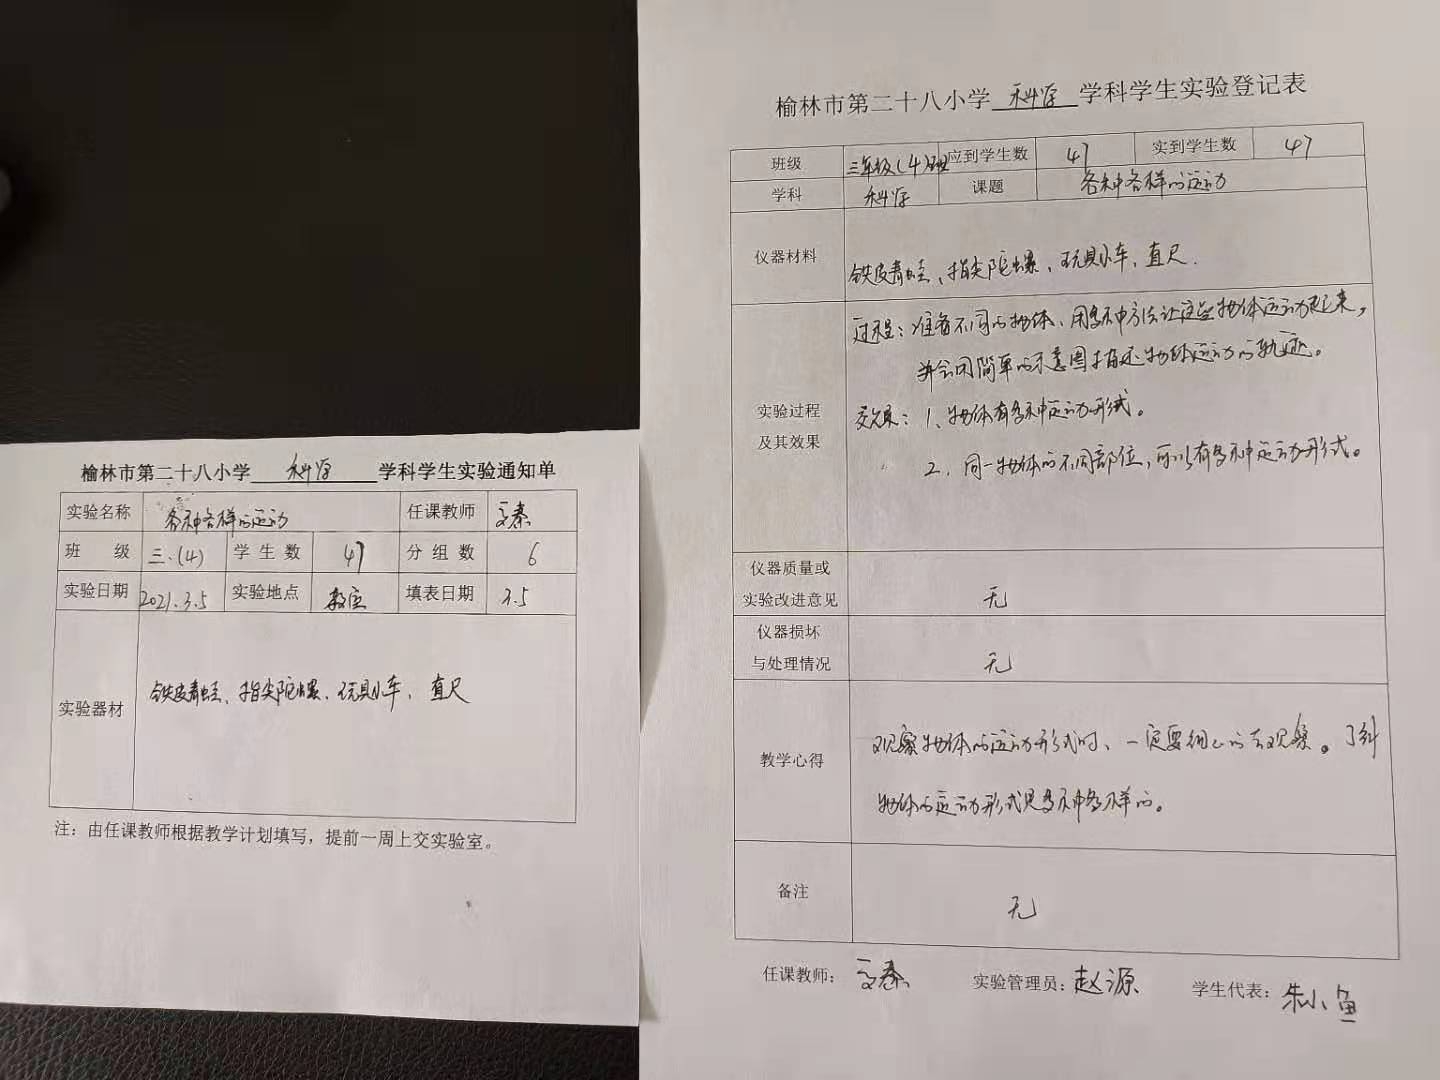 榆林市第二十八小学 科学 学科学生实验通知单
实验名称 各种各样的运动 任课教师
班 级 三.(4) 学生数 47 分组数 6
实验日期 2021.3.5 实验地点 教室 填表日期 3.5
实验器材 铁皮青蛙、指尖陀螺、玩具小车、直尺
注：由任课教师根据教学计划填写，提前一周上交实验室。
榆林市第二十八小学 科学 学科学生实验登记表
班级 三年级(4)班 应到学生数 47 实到学生数 47
学科 科学 课题 各种各样的运动
仪器材料 铁皮青蛙、指尖陀螺、玩具小车、直尺.
实验过程
及其效果
过程：准备不同的物体、用多种方法让这些物体运动起来，
并会用简单的示意图描述物体运动的轨迹。
效果：1、物体有多种运动形式。
2、同一物体的不同部位，可以有多种运动形式。
仪器质量或
实验改进意见 无
仪器损坏
与处理情况 无
教学心得
观察物体的运动形式时、一定要细心的去观察。了解
物体的运动形式是多种多样的。
备注 无
任课教师： 实验管理员：赵源 学生代表：朱小鱼